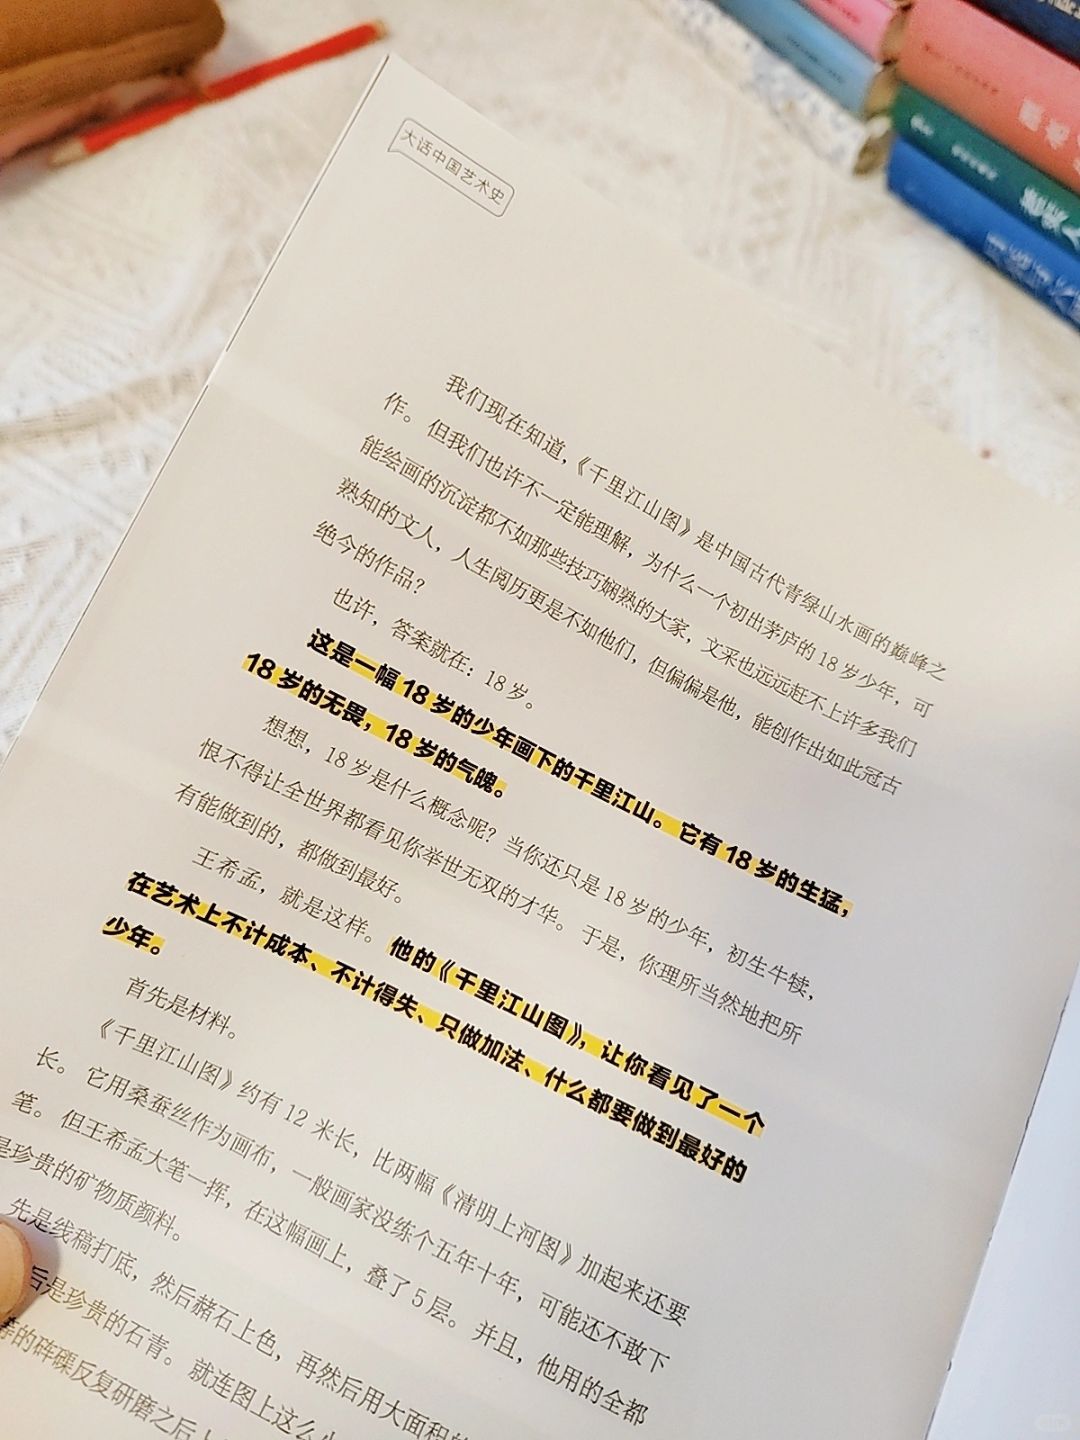 大话中国艺术史
我们现在知道，《千里江山图》是中国古代青绿山水画的巅峰之
作。但我们也许不一定能理解，为什么一个初出茅庐的18岁少年，可
能绘画的沉淀都不如那些技巧娴熟的大家，文采也远远赶不上许多我们
熟知的文人，人生阅历更是不如他们，但偏偏是他，能创作出如此冠古
绝今的作品？
也许，答案就在：18岁。
这是一幅18岁的少年画下的千里江山。它有18岁的生猛，
18岁的无畏，18岁的气魄。
想想，18岁是什么概念呢？当你还只是18岁的少年，初生牛犊，
恨不得让全世界都看见你举世无双的才华。于是，你理所当然地把所
有能做到的，都做到最好。
王希孟，就是这样。他的《千里江山图》，让你看见了一个
在艺术上不计成本、不计得失、只做加法、什么都要做到最好的
少年。
首先是材料。
《千里江山图》约有12米长，比两幅《清明上河图》加起来还要
长。它用桑蚕丝作为画布，一般画家没练个五年十年，可能还不敢下
笔。但王希孟大笔一挥，在这幅画上，叠了5层。并且，他用的全都
是珍贵的矿物质颜料。
先是线稿打底，然后赭石上色，再然后用大面积的
后是珍贵的石青。就连图上这么
的砗磲反复研磨之后